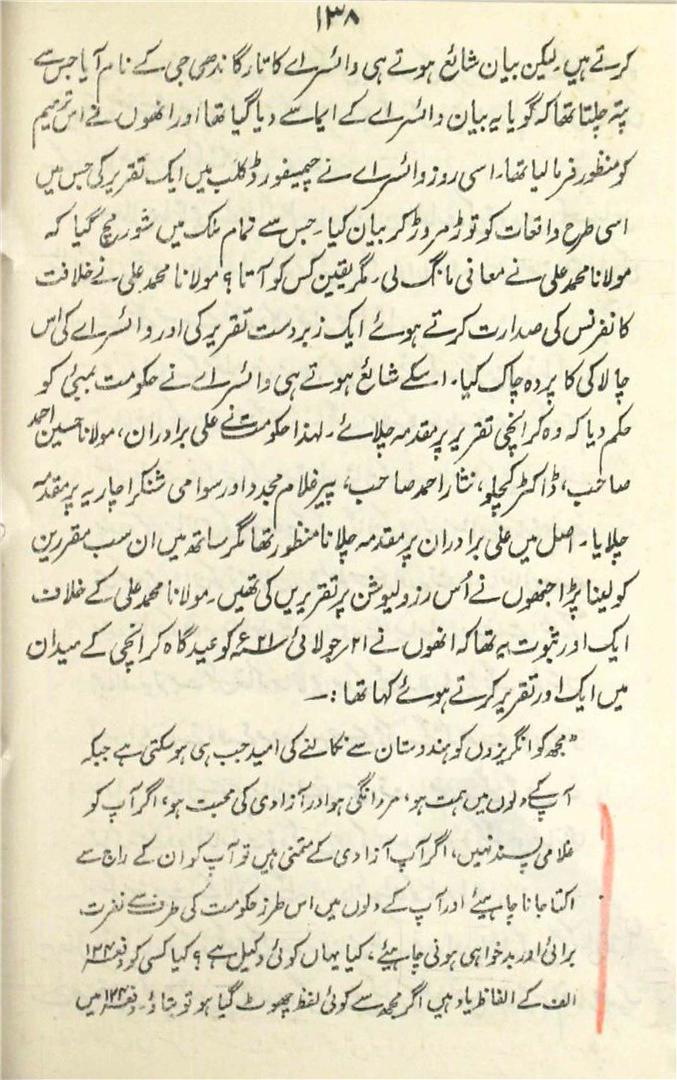 ۱۳۸
کرتے ہیں۔ لیکن بیان شائع ہوتے ہی وائسراے کا تار گاندھی جی کے نام آیا جس سے
پتہ چلتا تھا کہ گویا یہ بیان وائسراے کے ایما سے دیا گیا تھا اور انھوں نے اس ترمیم
کو منظور فرما لیا تھا۔ اسی روز وائسراے نے چیمسفورڈ کلب میں ایک تقریر کی جس میں
اسی طرح واقعات کو توڑ مروڑ کر بیان کیا۔ جس سے تمام ملک میں شور مچ گیا کہ
مولانا محمد علی نے معافی مانگ لی۔ مگر یقین کس کو آتا؟ مولانا محمد علی نے خلافت
کانفرنس کی صدارت کرتے ہوئے ایک زبردست تقریر کی اور وائسراے کی اس
چالاکی کا پردہ چاک کیا۔ اسکے شائع ہوتے ہی وائسراے نے حکومت بمبئی کو
حکم دیا کہ وہ کرانچی تقریر پر مقدمہ چلائے۔ لہذا حکومت نے علی برادران، مولانا حسین احمد
صاحب، ڈاکٹر کچلو، نثار احمد صاحب، پیر غلام مجدد اور سوامی شنکرا چاریہ پر مقدمہ
چلایا۔ اصل میں علی برادران پر مقدمہ چلانا منظور تھا مگر ساتھ میں ان سب مقررین
کو لینا پڑا جنھوں نے اُس رزولیوشن پر تقریریں کی تھیں۔ مولانا محمد علی کے خلاف
ایک اور ثبوت یہ تھا کہ انھوں نے ۲۱ جولائی ۲۱ء کو عیدگاہ کرانچی کے میدان
میں ایک اور تقریر کرتے ہوئے کہا تھا:۔
”مجھ کو انگریزوں کو ہندوستان سے نکالنے کی امید جب ہی ہو سکتی ہے جبکہ
آپ کے دلوں میں ہمت ہو، مردانگی ہو اور آزادی کی محبت ہو، اگر آپ کو
غلامی پسند نہیں، اگر آپ آزادی کے متمنی ہیں تو آپ کو ان کے راج سے
اکتا جانا چاہیئے اور آپ کے دلوں میں اس طرز حکومت کی طرف سے نفرت
برائی اور بدخواہی ہونی چاہیئے، کیا یہاں کوئی وکیل ہے؟ کیا کسی کو دفعہ ۱۲۴
الف کے الفاظ یاد ہیں اگر مجھ سے کوئی لفظ چھوٹ گیا ہو تو بتاؤ۔ دفعہ ۱۲۴ میں